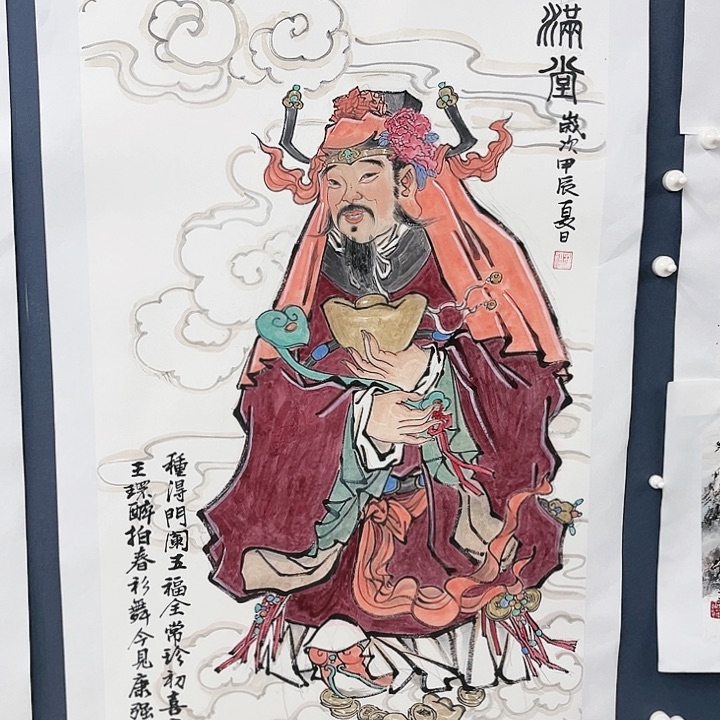 滿堂
歲次甲辰夏日
種得門闌五福全常珍初喜
王琛醉拍春衫舞今見康强